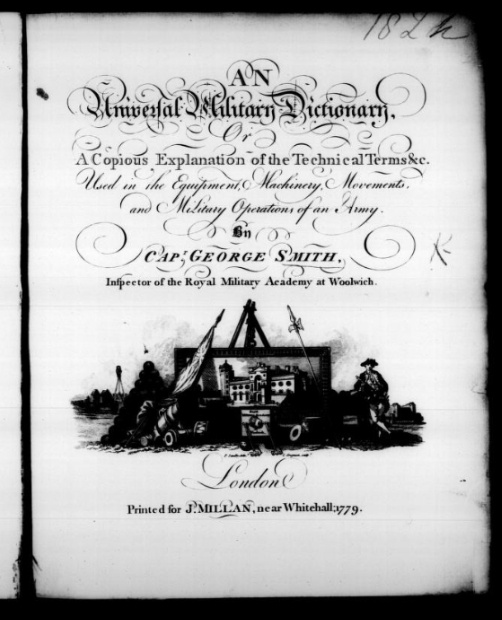 182
AN
Universal Military Dictionary,
Or
A Copious Explanation of the Technical Terms &c.
Used in the Equipment, Machinery, Movements,
and Military Operations of an Army.
By
CAPT. GEORGE SMITH,
Inſpector of the Royal Military Academy at Woolwich.
London
Printed for J. MILLAN, near Whitehall; 1779.